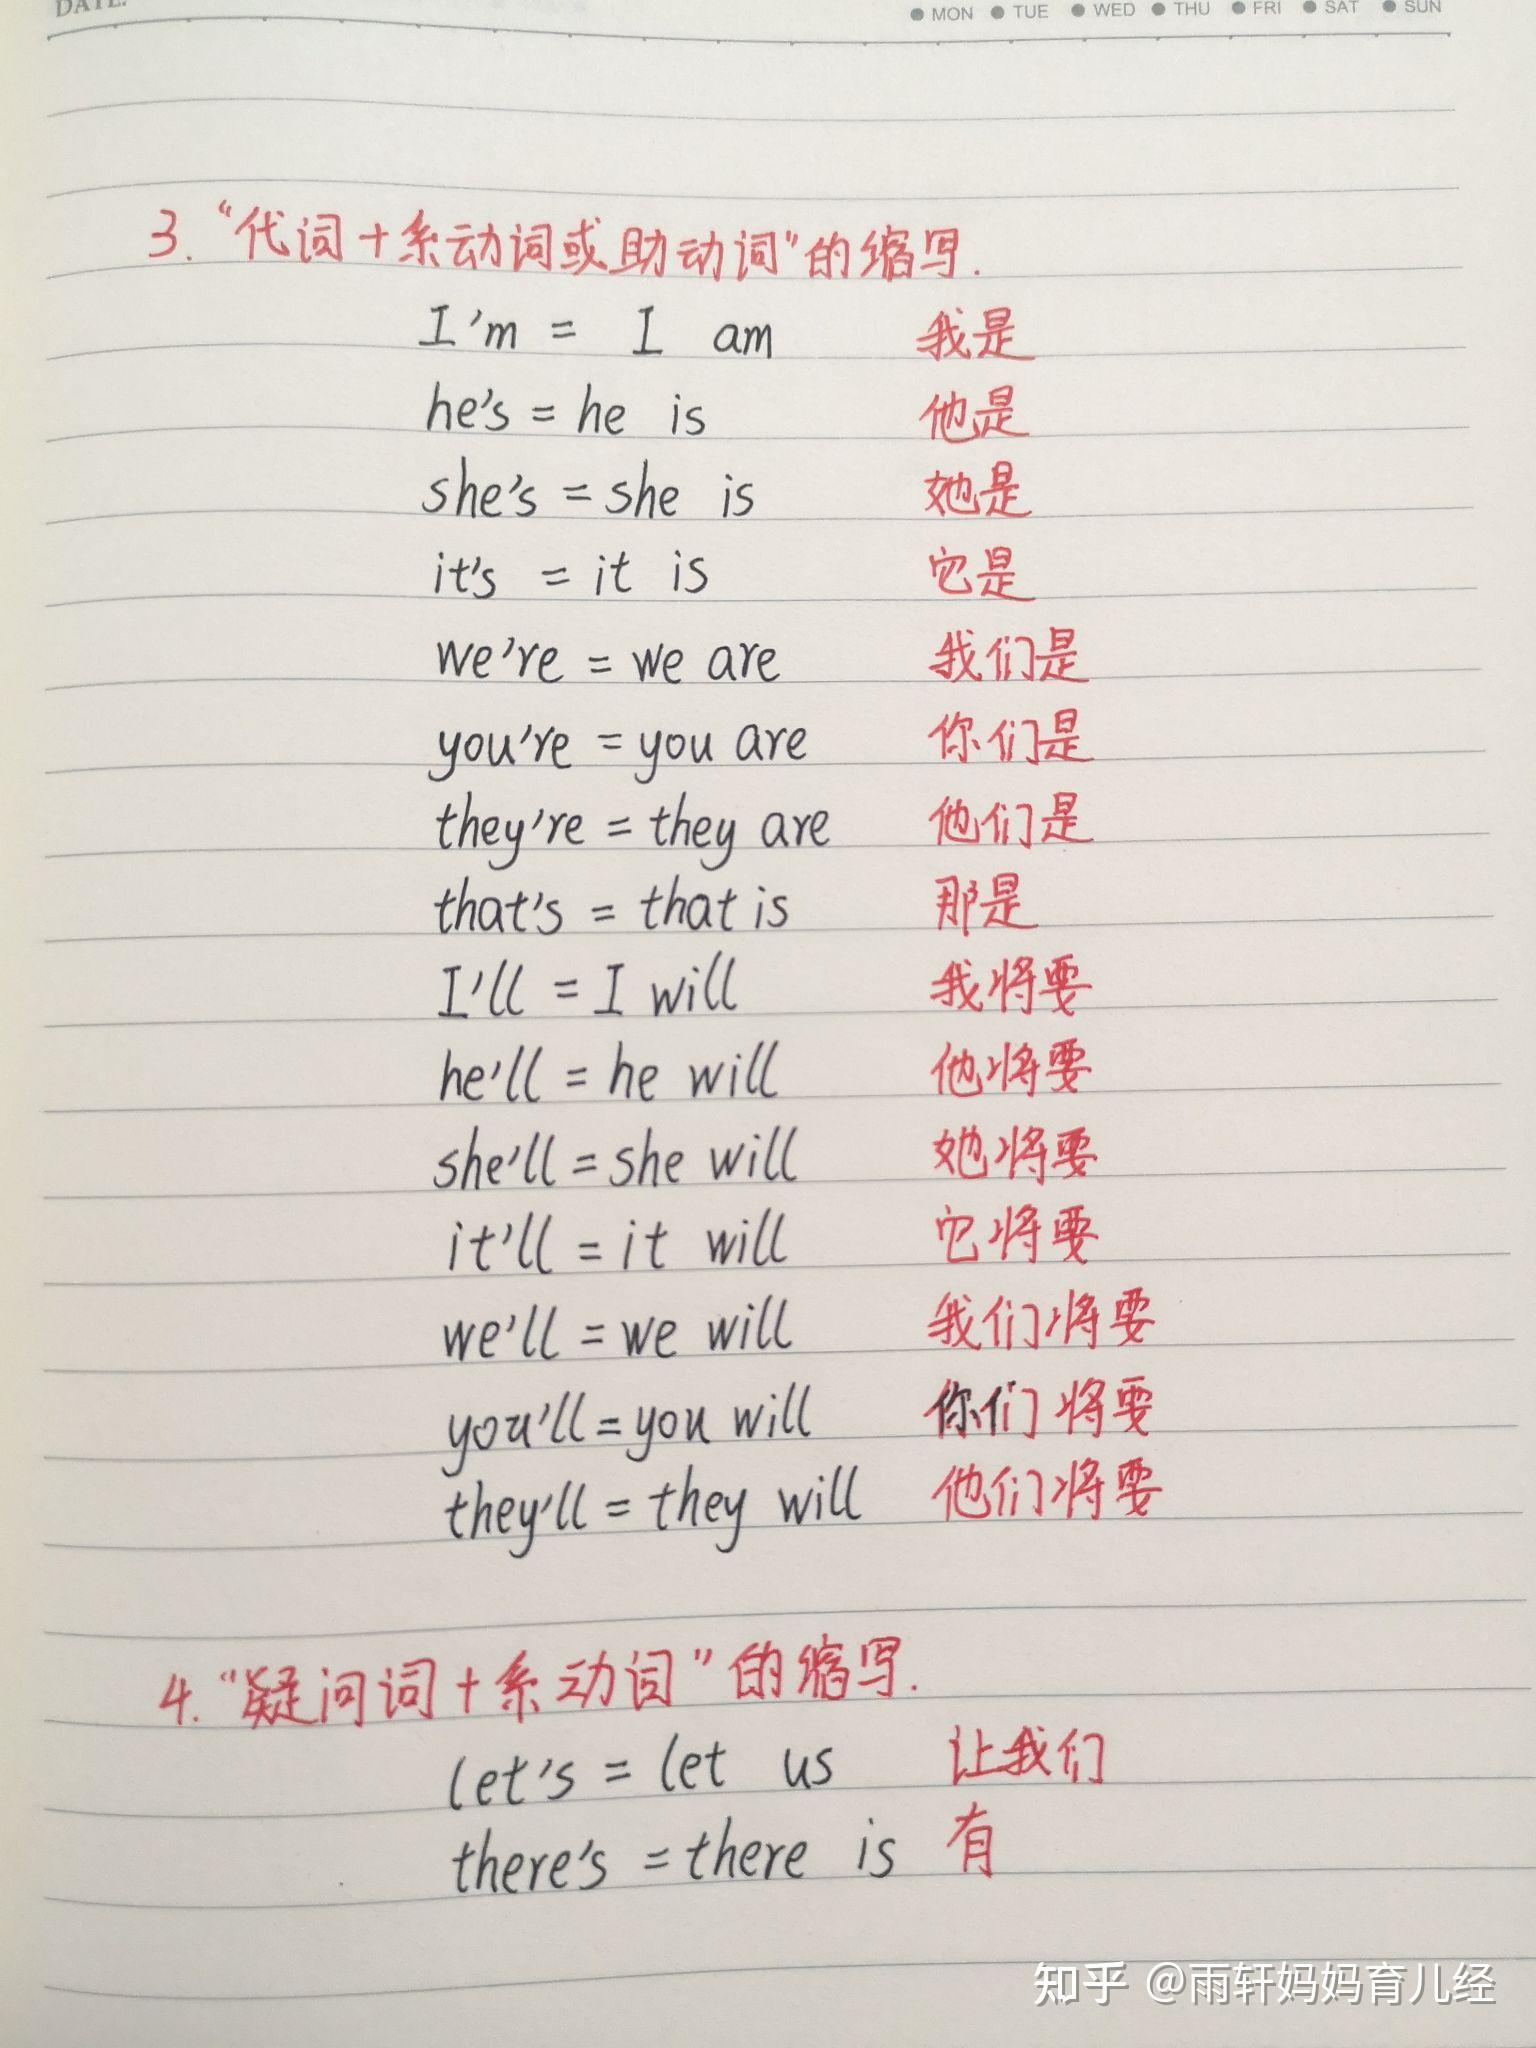 DATE:
MON TUE WED THU FRI SAT SUN
3. “代词+系动词或助动词”的缩写.
I'm = I am 我是
he's = he is 他是
she's = she is 她是
it's = it is 它是
we're = we are 我们是
you're = you are 你们是
they're = they are 他们是
that's = that is 那是
I'll = I will 我将要
he'll = he will 他将要
she'll = she will 她将要
it'll = it will 它将要
we'll = we will 我们将要
you'll = you will 你们将要
they'll = they will 他们将要
4. “疑问词+系动词”的缩写.
let's = let us 让我们
there's = there is 有
知乎 @雨轩妈妈育儿经